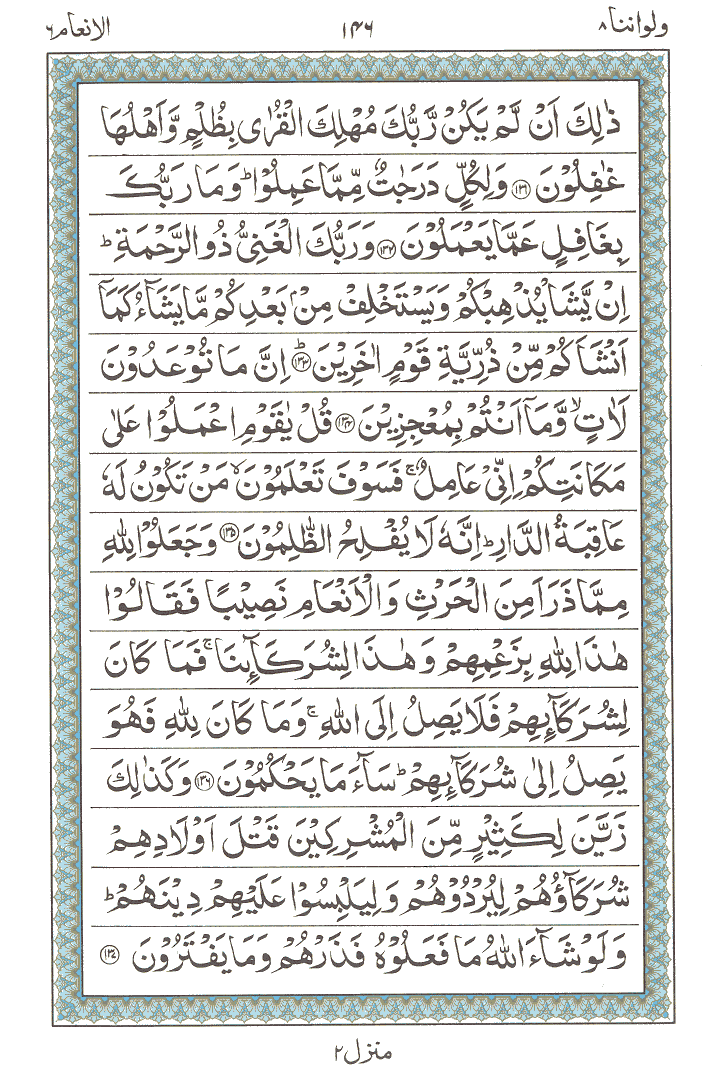 ولواننا ۸
۱۴۶
الانعام ۶
ذٰلِكَ اَنْ لَّمْ يَكُنْ رَّبُّكَ مُهْلِكَ الْقُرٰى بِظُلْمٍ وَّاَهْلُهَا
غٰفِلُوْنَ ﴿۱۳۱﴾ وَلِكُلٍّ دَرَجٰتٌ مِّمَّا عَمِلُوْا ؕ وَمَا رَبُّكَ
بِغَافِلٍ عَمَّا يَعْمَلُوْنَ ﴿۱۳۲﴾ وَرَبُّكَ الْغَنِىُّ ذُو الرَّحْمَةِ ؕ
اِنْ يَّشَاْ يُذْهِبْكُمْ وَيَسْتَخْلِفْ مِنْۢ بَعْدِكُمْ مَّا يَشَآءُ كَمَاۤ
اَنْشَاَكُمْ مِّنْ ذُرِّيَّةِ قَوْمٍ اٰخَرِيْنَ ﴿۱۳۳﴾ؕ اِنَّ مَا تُوْعَدُوْنَ
لَاٰتٍ ۙ وَّمَاۤ اَنْتُمْ بِمُعْجِزِيْنَ ﴿۱۳۴﴾ قُلْ يٰقَوْمِ اعْمَلُوْا عَلٰى
مَكَانَتِكُمْ اِنِّىْ عَامِلٌ ۚ فَسَوْفَ تَعْلَمُوْنَ ۙ مَنْ تَكُوْنُ لَهٗ
عَاقِبَةُ الدَّارِ ؕ اِنَّهٗ لَا يُفْلِحُ الظّٰلِمُوْنَ ﴿۱۳۵﴾ وَجَعَلُوْا لِلّٰهِ
مِمَّا ذَرَاَ مِنَ الْحَرْثِ وَالْاَنْعَامِ نَصِيْبًا فَقَالُوْا
هٰذَا لِلّٰهِ بِزَعْمِهِمْ وَهٰذَا لِشُرَكَآئِنَا ۚ فَمَا كَانَ
لِشُرَكَآئِهِمْ فَلَا يَصِلُ اِلَى اللّٰهِ ۚ وَمَا كَانَ لِلّٰهِ فَهُوَ
يَصِلُ اِلٰى شُرَكَآئِهِمْ ؕ سَآءَ مَا يَحْكُمُوْنَ ﴿۱۳۶﴾ وَكَذٰلِكَ
زَيَّنَ لِكَثِيْرٍ مِّنَ الْمُشْرِكِيْنَ قَتْلَ اَوْلَادِهِمْ
شُرَكَآؤُهُمْ لِيُرْدُوْهُمْ وَلِيَلْبِسُوْا عَلَيْهِمْ دِيْنَهُمْ ؕ
وَلَوْ شَآءَ اللّٰهُ مَا فَعَلُوْهُ فَذَرْهُمْ وَمَا يَفْتَرُوْنَ ﴿۱۳۷﴾
منزل ۲